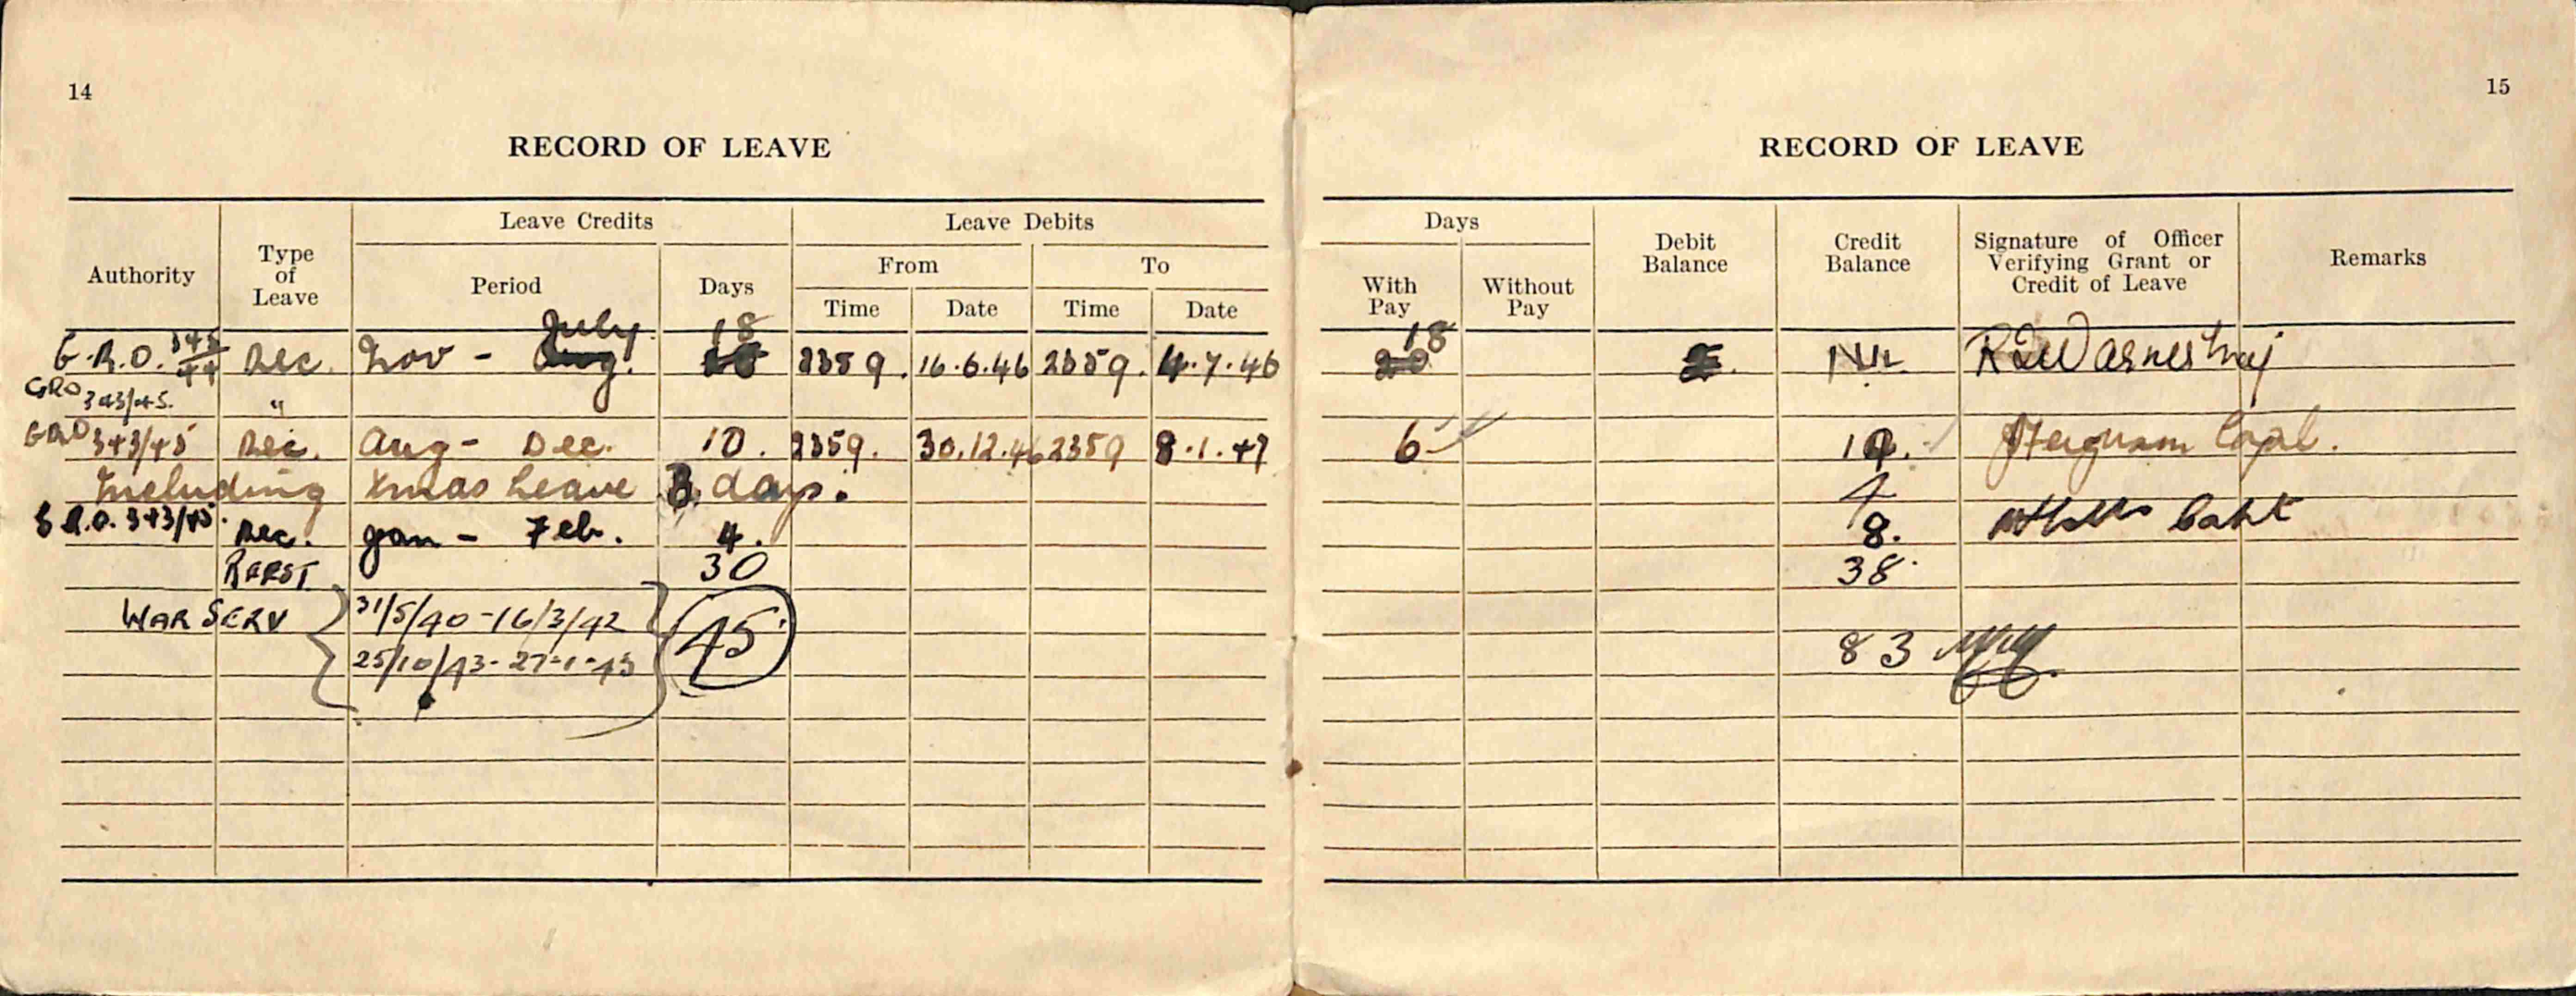 14
RECORD OF LEAVE
Authority
Type of Leave
Leave Credits
Period
Days
Leave Debits
From
To
Time
Date
Time
Date
July 18
G.R.O. 343/44 Rec. Nov - Aug. 2359. 16.6.46 2359. 4.7.46
GRO 343/45. "
GRO 343/45 Rec. Aug - Dec. 10. 2359. 30.12.46 2359 8.1.47
Including Xmas Leave 3 days.
G.R.O. 343/45. Rec. Jan - Feb. 4.
30
WAR SERV 31/5/40 - 16/3/42 45
25/10/43 - 27-1-45
15
RECORD OF LEAVE
Days
With Pay
Without Pay
Debit Balance
Credit Balance
Signature of Officer Verifying Grant or Credit of Leave
Remarks
18
20 NIL Maj
6 Ferguson Capt.
4
8. Capt
38
83